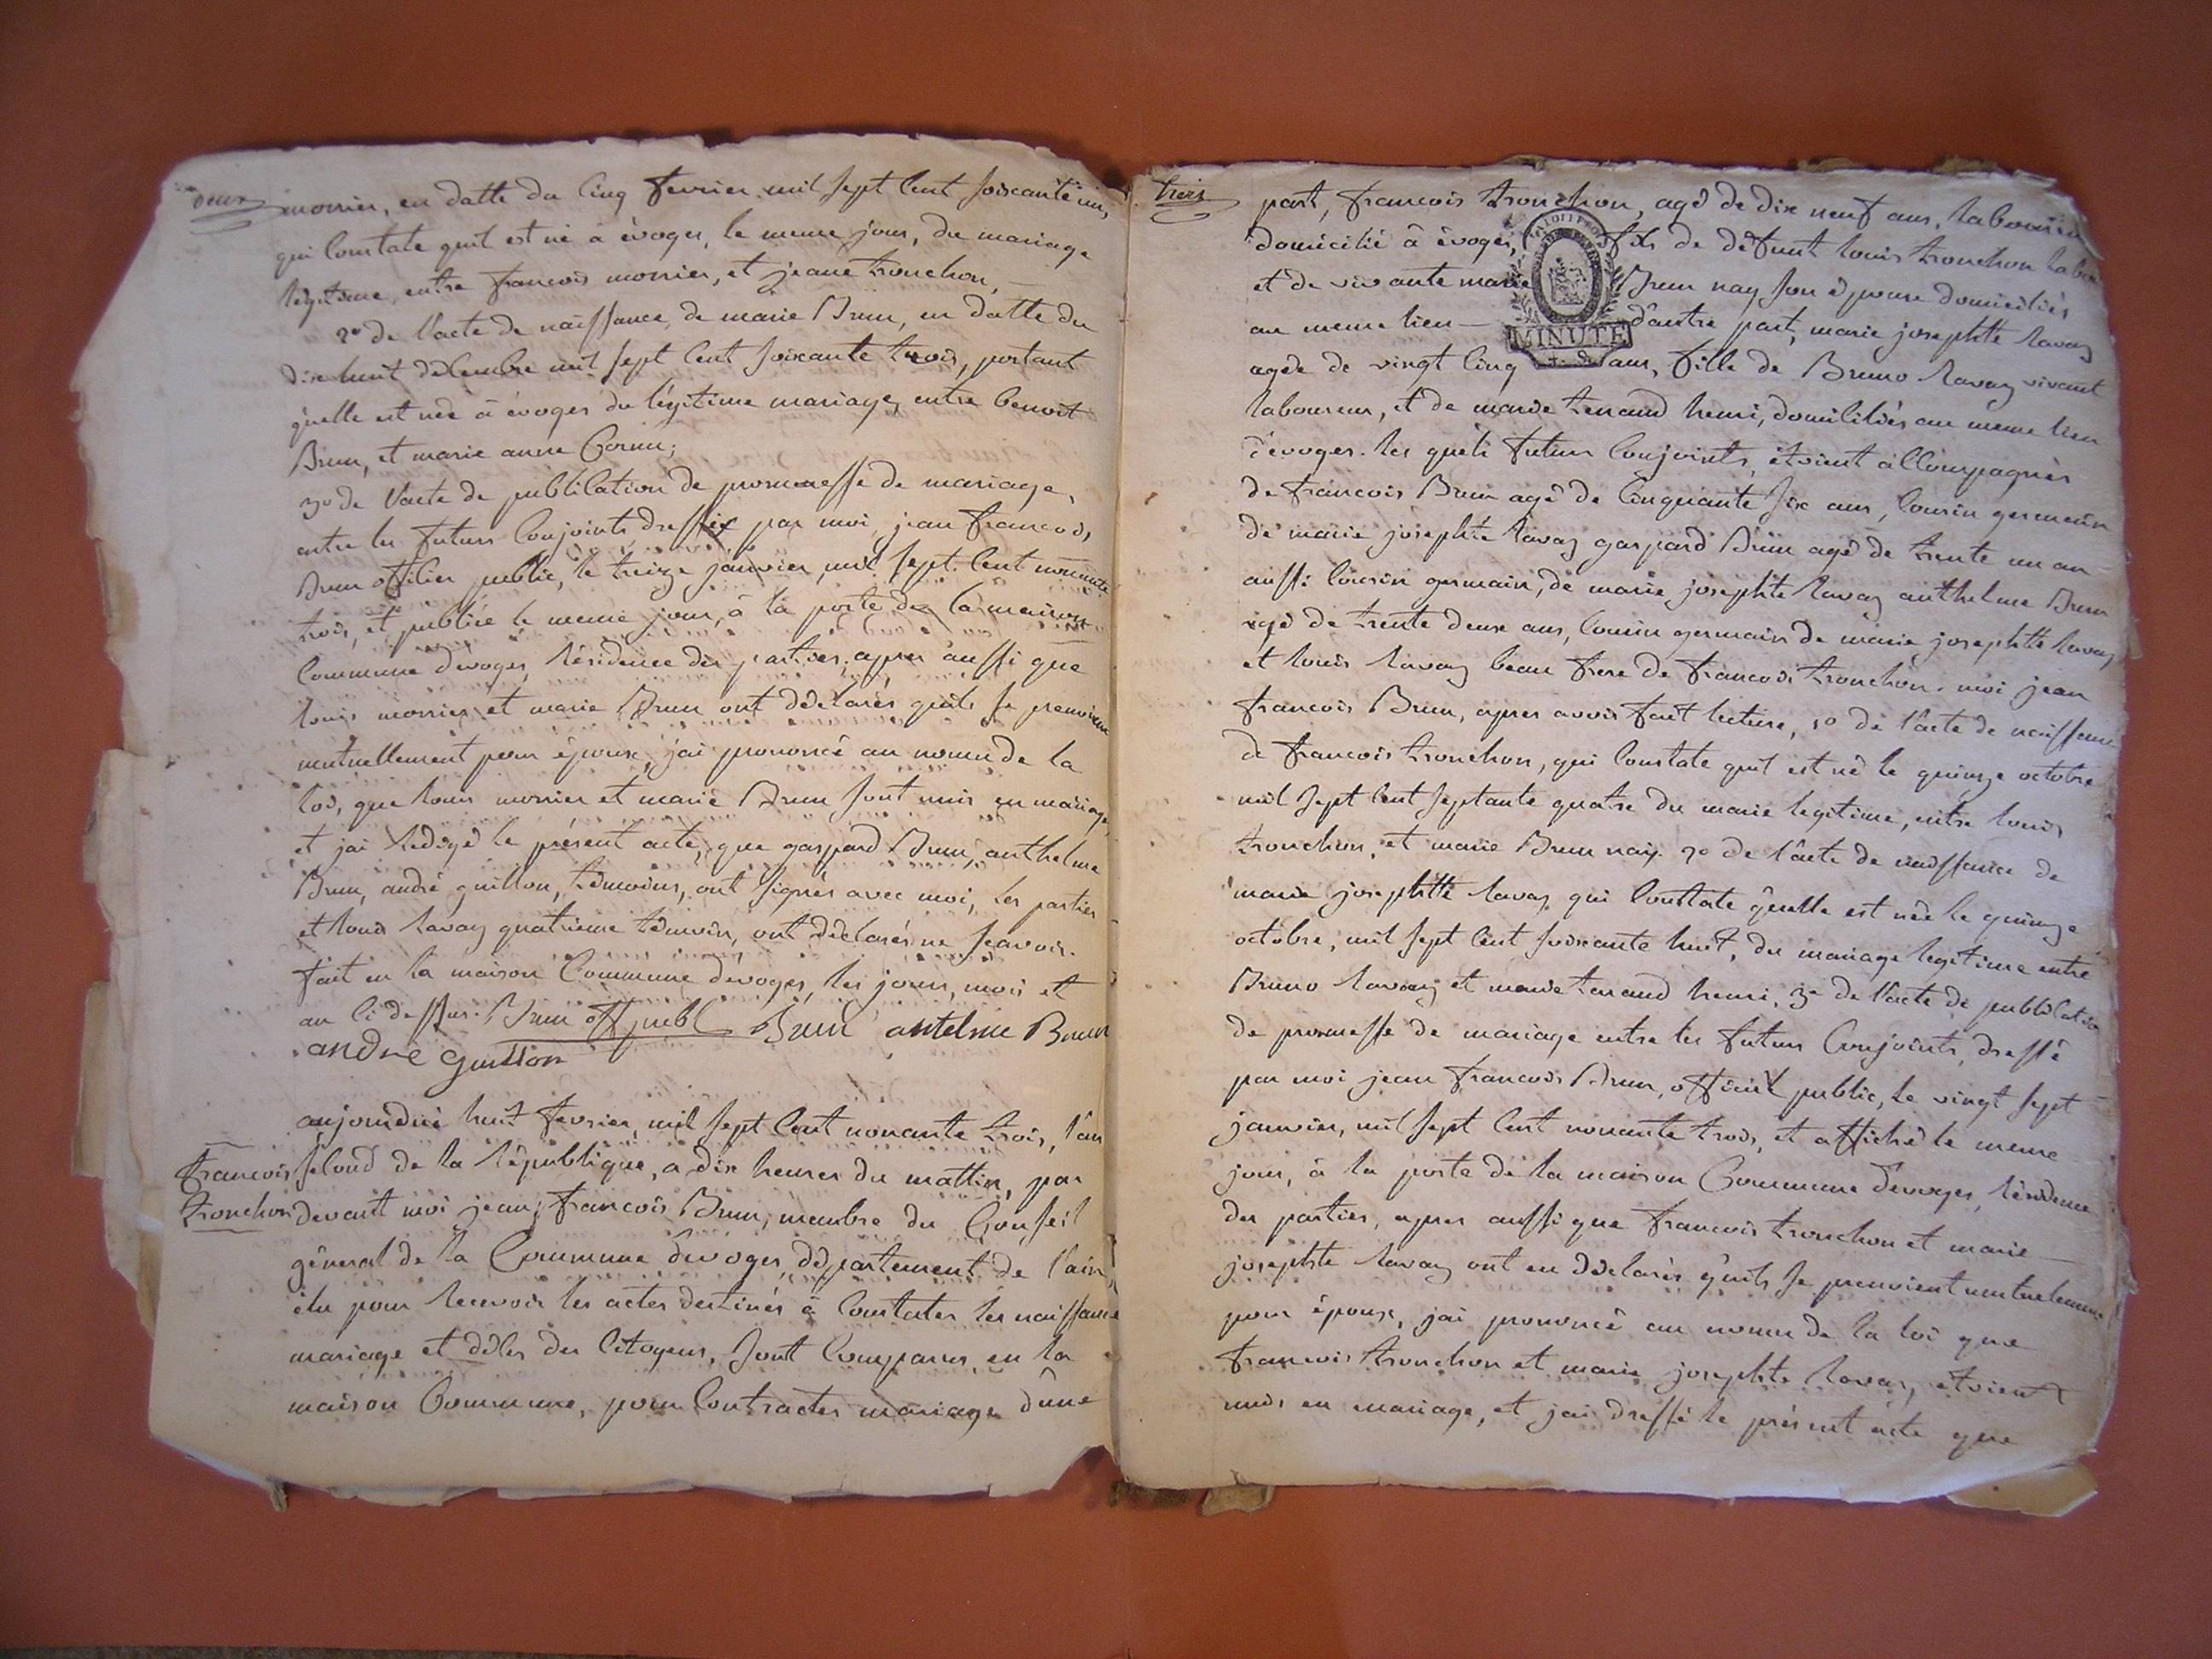 deux
monier, en datte du cinq fevrier mil sept cent soixante un,
qui constate quil est né a évoges, le meme jour, du mariage
légitime, entre francois monier, et jeane tronchon,
2º de l'acte de naissance, de marie Brun, en datte du
dixhuit décembre mil sept cent soixante trois, portant
qu'elle est née à évoges du légitime mariage, entre benoit
Brun, et marie anne Cornu;
3º de l'acte de publication de promesse de mariage,
entre les futurs conjoints dressé par moi jean francois
Brun officier public, le treize janvier mil sept cent nonante
trois, et publiée le meme jour, à la porte de la maison
commune dévoges, résidence des parties, apres aussi que
louis monier et marie Brun ont déclarés quils se prenoient
mutuellement pour époux, jai prononcé au nom de la
loi, que louis monier et marie Brun sont unis en mariage,
et jai rédigé le présent acte, que gaspard Brun, anthelme
Brun, andré guillon, témoins, ont signés avec moi, les parties
et louis ravaz quatrieme témoin, ont déclarés ne scavoir.
fait en la maison commune dévoges, les jour, mois et
an ci dessus. Brun off publ Brun antelme Brun
andre guillon
aujourdui huit fevrier, mil sept cent nonante trois, l'an
francois
second de la république, a dix heures du mattin, par
tronchon
devant moi jean francois Brun, membre du Conseil
géneral de la Commune dévoges, département de l'ain,
élu pour recevoir les actes destinés à constater les naissance
mariage et déces des citoyens, sont comparus en la
maison Commune, pour contracter mariage d'une
trois
part, francois tronchon, agé de dix neuf ans, laboureur
domicilié à évoges, fils de défunt louis tronchon labou
et de vivante marie Brun nay son épouse domiciliés
au meme lieu - d'autre part, marie josephtte ravaz
MINUTE
agée de vingt cinq ans, fille de Bruno ravaz vivant
laboureur, et de marie tenand henri, domiciliés au même lieu
d'évoges. les quels futurs conjoints, étoient accompagnés
de francois Brun agé de cinquante six ans, cousin germain
de marie josephte ravaz gaspard Brun agé de trente un an
aussi cousin germain, de marie josephte ravaz anthelme Brun
agé de trente deux ans, cousin germain de marie josephtte ravaz,
et louis ravaz beau frere de francois tronchon. moi jean
francois Brun, apres avoir fait lecture, 1º de l'acte de naissance
de francois tronchon, qui constate quil est né le quinze octobre
mil sept cent septante quatre du marie legitime, entre louis
tronchon, et marie Brun nay. 2º de l'acte de naissance de
marie josephtte ravaz qui constate quelle est née le quinze
octobre, mil sept cent soixante huit, du mariage legitime entre
Bruno ravaz et marie tenand henri, 3º de l'acte de publication
de promesse de mariage entre les futurs conjoints, dressé
par moi jean francois Brun, officié public, le vingt sept
janvier, mil sept cent nonante trois, et affiché le meme
jour, à la porte de la maison Commune dévoges, résidence
des parties, apres aussi que francois tronchon et marie
josephte ravaz ont en déclarés quils se prenoient mutuelement
pour époux, jai prononcé au nom de la loi que
francois tronchon et marie josephte ravaz, étoient
unis en mariage, et jai dressé le présent acte que